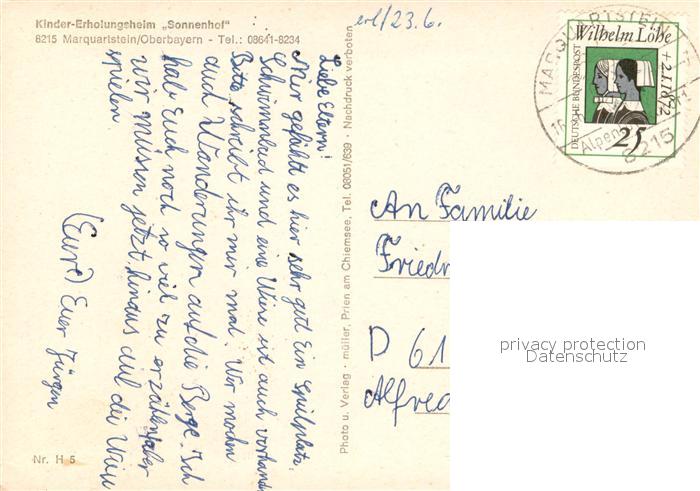 Kinder-Erholungsheim „Sonnenhof"
8215 Marquartstein/Oberbayern - Tel.: 08641-8234
erl/23.6.
Liebe Eltern!
Mir gefählt es hier sehr gut Ein Spielplatz,
Schwimmbad und eine Wiese ist auch vorhanden
Bitte schreibt ihr mir mal. Wir machen
auch Wanderungen auf die Berge. Ich
hab Euch noch so viel zu erzählen aber
wir müssen jetzt hinaus auf die Wiese
spielen
(Eure) Euer Jürgen
Nr. H 5
Photo u. Verlag · müller, Prien am Chiemsee, Tel. 08051/639 · Nachdruck verboten
MARQUARTSTEIN
16
Alpen
8215
Wilhelm Löhe
+ 2.1.1872
DEUTSCHE BUNDESPOST
25
An Familie
Friedr
D 61
Alfred
privacy protection
Datenschutz